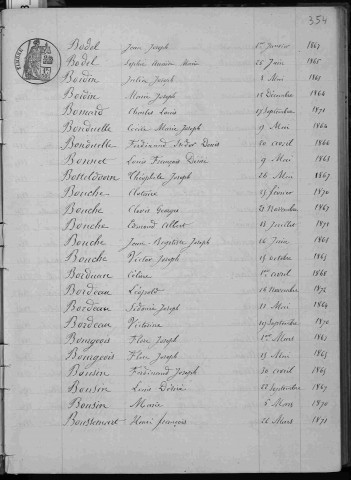 354
Bodel Jean Joseph 1er Janvier 1867
Bodel Sophie Marie 25 Juin 1865
Boidin Julien Joseph 8 Mai 1861
Boidin Marie Joseph 18 Décembre 1864
Bonnard Charles Louis 19 Septembre 1871
Bonduelle Cécile Marie Joseph 9 Mai 1864
Bonduelle Ferdinand Denis 20 avril 1866
Bonnet Louis François 9 Mai 1868
Botteldoorn Théophile Joseph 26 Mai 1867
Bouche Clotaire 13 février 1870
Bouche Clovis Georges 21 Novembre 1867
Bouche Edmond Albert 18 Juillet 1871
Bouche Jean-Baptiste Joseph 16 Juin 1868
Bouche Victor Joseph 15 octobre 1863
Bordeau Céline 1er avril 1868
Bordeau Léopold 16 Novembre 1872
Bordeau Sidonie Joseph 11 Mai 1864
Bordeau Victorine 19 Septembre 1870
Bourgeois Flore Joseph 1er Mars 1861
Bourgeois Flore Joseph 15 Mai 1863
Bousin Ferdinand Joseph 30 avril 1865
Bousin Louis Désiré 22 Septembre 1867
Bousin Marie 5 Mars 1870
Boussemart Henri François 22 Mars 1871